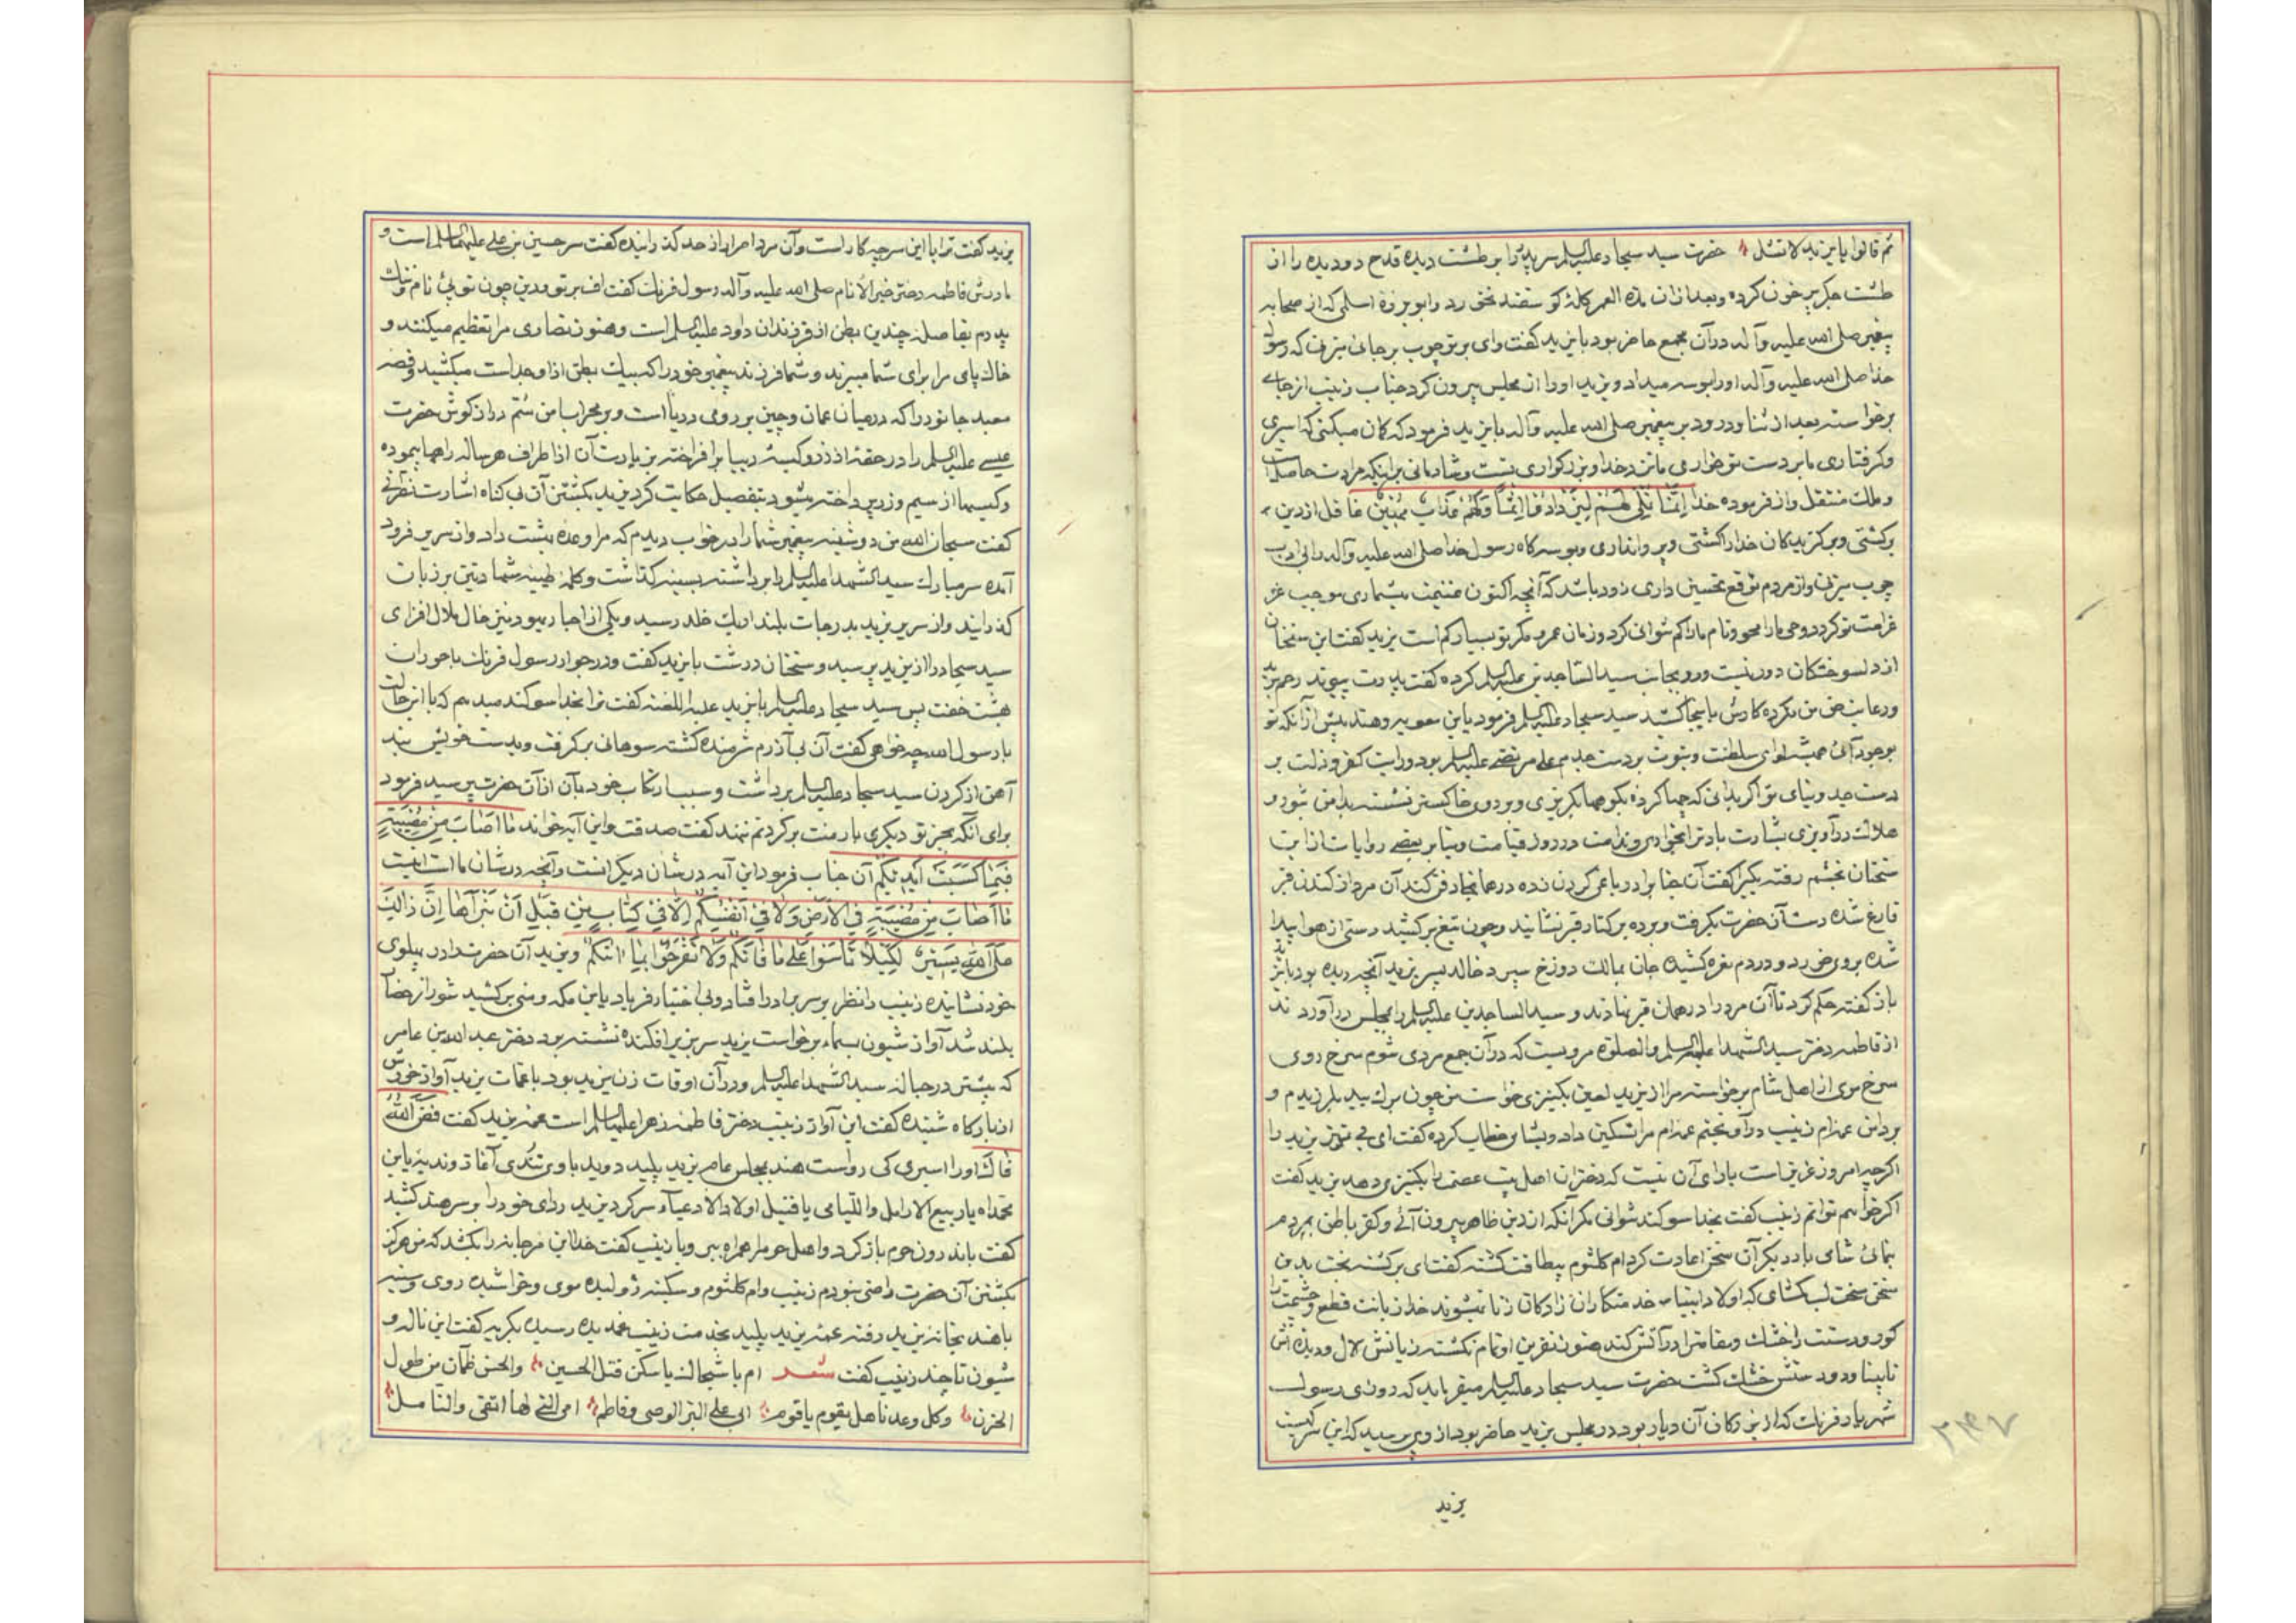 ثم قالوا یا یزید لا تشل حضرت سید سجاد علیه السلم سر پدر را بر طشت دیده قدح دو دیده را از
طشت جگر پر خون کرده و بعد از آن مدة العمر کلهٔ گوسفند نخورد و ابو برزهٔ اسلمی که از صحابه
پیغمبر صلی الله علیه وآله در آن مجمع حاضر بود با یزید گفت وای بر تو چوب بر جائی میزنی که رسول
خدا صلی الله علیه وآله او را بوسه میداد و یزید او را از مجلس بیرون کرد جناب زینب از جای
برخواسته بعد از ثنا و درود بر پیغمبر صلی الله علیه وآله با یزید فرمود که گمان میکنی که اسیری
و گرفتاری ما بر دست تو خواری ما نزد خدا و بزرگواری تست و شادمانی بر اینکه مرادت حاصل
و ملک منتقل و از فرموده خدا اِنَّما نُمْلی لَهُمْ لِیَزْدادُوا اِثْماً وَلَهُمْ عَذابٌ مُهینٌ غافل از دین
برگشتی و برگزیدگان خدا را کشتی و پروا نداری و بوسه گاه رسول خدا صلی الله علیه وآله را بی ادب
چوب میزنی و از مردم توقع تحسین داری زود باشد که آنچه اکنون غنیمت میشماری موجب
غرامت تو گردد و وحی ما را محو و نام ما را گم نتوانی کرد و زمان عمر و مکر تو بسیار کم است یزید گفت این سخنان
از دلسوختگان دور نیست و رو بجانب سید الساجدین علیه السلم کرده گفت پدرت پیوند رحم برید
و رعایت حق من نکرده کارش باینجا کشید سید سجاد علیه السلم فرمود یا ابن معویه و هند پیش از آنکه تو
بوجود آئی همیشه لوای سلطنت و نبوت بر دست جدم علی مرتضی علیه السلم بود و رایت کفر و ذلت بر
دست جد و نیای تو اگر بدانی که چها کرده بکوهها بگریزی و بر روی خاکستر نشسته بدامن شور و
هلاکت درآویزی بشارت باد ترا بخواری و ندامت در روز قیامت و بنا بر بعضی روایات از این
سخنان بخشم رفته یکیرا گفت آن جنابرا در باغی گردن زده در همانجا دفن کند آن مرد از کندن قبر
فارغ شده دست آن حضرت بگرفت و برده بر کنار قبر نشانید و چون تیغ بر کشید دستی از هوا پیدا
شده بروی خورد و دردم نعره کشیده جان بمالک دوزخ سپرد خالد پسر یزید آنچه دیده بود با یزید
باز گفته حکم کرد تا آن مرد را در همان قبر نهادند و سید الساجدین علیه السلم را بمجلس در آوردند
از فاطمه دختر سید الشهدا علیهم السلم والصلوة مرویست که در آن جمع مردی شوم سرخ روی
سرخ موی از اهل شام برخواسته مرا از یزید لعین بکنیزی خواست من چون برک بید بلرزیدم و
بر دامن عمه ام زینب در آویختم عمه ام مرا تسکین داد و بشامی خطاب کرده گفت ای بی تمیز یزید را
اگر چه امروز عزیز است یارای آن نیست که دختران اهل بیت عصمت را بکنیزی دهد یزید گفت
اگر خواهم توانم زینب گفت بخدا سوگند نتوانی مگر آنکه از دین ظاهر بیرون آئی و کفر باطن بمردم
نمائی شامی بار دیگر آن سخن اعادت کرد ام کلثوم بیطاقت گشته گفت ای برگشته بخت بدین
سختی سخت لب مکشای که اولاد انبیا خدمتکاران زادگان زنا نمیشوند خدا زبانت قطع و چشمت را
کور و دستت را خشک و مقامت را در آتش کند هنوز نفرین او تمام نگشته زبانش لال و دیده اش
نابینا و دو دستش خشک گشت حضرت سید سجاد علیه السلم میفرماید که روزی رسول
شهریار فرنگ که از بزرگان آن دیار بود در مجلس یزید حاضر بود از وی پرسید که این سر کیست
یزید
۲۴۷
یزید گفت ترا با این سر چه کار است و آن مرد ابرام از حد گذرانیده گفت سر حسین بن علی علیهما السلم است و
مادرش فاطمه دختر خیر الانام صلی الله علیه وآله رسول فرنگ گفت اف بر تو و دین چون توئی نام و ننگ
پدرم بفاصله چندین بطن از فرزندان داود علیه السلم است و هنوز نصاری مرا تعظیم میکنند و
خاک پای مرا برای شفا میبرند و شما فرزند پیغمبر خود را که بیک بطن از او جداست میکشید و قصه
معبد جانور را که در میان عمان و چین بر روی دریا است و بر محراب سم دراز گوش حضرت
عیسی علیه السلم را در حقهٔ از زر و کیسهٔ دیبا بر افراخته بزیارت آن از اطراف هر ساله راهها پیموده
و کیسها از سیم و زر پرداخته میشود بتفصیل حکایت کرد یزید بکشتن آن بی گناه اشارت نصرانی
گفت سبحان الله من دوشینه پیغمبر شما را در خواب دیدم که مرا وعده بهشت داد و از سریر فرود
آمده سر مبارک سید الشهدا علیه السلم را بر داشته بسینه گذاشت و کلمه طیبه شهادتین بر زبان
گذرانید و از سریر یزید بدرجات بلند اریک خلد رسید و یکی از احبار یهود نیز حال ملال افزای
سید سجاد را از یزید پرسید و سخنان درشت با یزید گفت و در جوار رسول فرنگ با حوران
بهشت خفت پس سید سجاد علیه السلم با یزید علیه اللعنه گفت ترا بخدا سوگند میدهم که با این حالت
با رسول الله چه خواهی گفت آن بی آذرم شرمنده گشته سوهانی بر گرفت و بدست خویش بند
آهن از گردن سید سجاد علیه السلم برداشت و سبب ارتکاب خود بآن از آن حضرت پرسید فرمود
برای آنکه بجز تو دیگری بار منت بر گردنم ننهد گفت صدقت و این آیه خواند ما اَصابَ مِنْ مُصیبَةٍ
فَبِما کَسَبَتْ اَیْدیکُمْ آن جناب فرمود این آیه در شان دیگرانست و آنچه در شان ما است اینست
ما اَصابَ مِنْ مُصیبَةٍ فِی الْاَرْضِ وَلا فی اَنْفُسِکُمْ اِلّا فی کِتابٍ مِنْ قَبْلِ اَنْ نَبْرَاَها اِنَّ ذالِکَ
عَلَی اللهِ یَسیرٌ لِکَیْلا تَأْسَوْا عَلی ما فاتَکُمْ وَلا تَفْرَحُوا بِما اتیکُمْ و یزید آن حضرت را در پهلوی
خود نشانیده زینب را نظر بر سر برادر افتاد و بی اختیار فریاد یا ابن مکه و منی بر کشید شور از حضار
بلند شد آواز شیون بسما برخواست یزید سر بزیر افکنده نشسته بود دختر عبد الله بن عامر
که پیشتر در حباله سید الشهدا علیه السلم و در آن اوقات زن یزید بود با عمات یزید آواز خروش
از بارگاه شنیده گفت این آواز زینب دختر فاطمه زهرا علیها السلم است عمه یزید گفت فض الله
فاک او را اسیری کی رواست هند بمجلس عام یزید پلید دوید با وی تندی آغاز و ندبه یا ابن
محمداه یا ربیع الارامل والیتامی یا قتیل اولاد الادعیاء سر کرد یزید ردای خود را بر سر هند کشید
گفت باندرون حرم باز گرد و اهل حرم را همراه ببر و با زینب گفت خدا ابن مرجانه را بکشد که من هرگز
بکشتن آن حضرت راضی نبودم زینب و ام کلثوم و سکینه ژولیده موی و خراشیده روی و سینه
با هند بخانه یزید رفته عمه یزید پلید بخدمت زینب غمدیده رسیده بگریه گفت این ناله و
شیون تا چند زینب گفت شعر ام با شجالک یا سکن قتل الحسین والحسن ظمآن من طول
الحزن وکل وعد ناهل یقوم یا قوم ابی علی البر الوصی وفاطم امی التی لها التقی والنامل